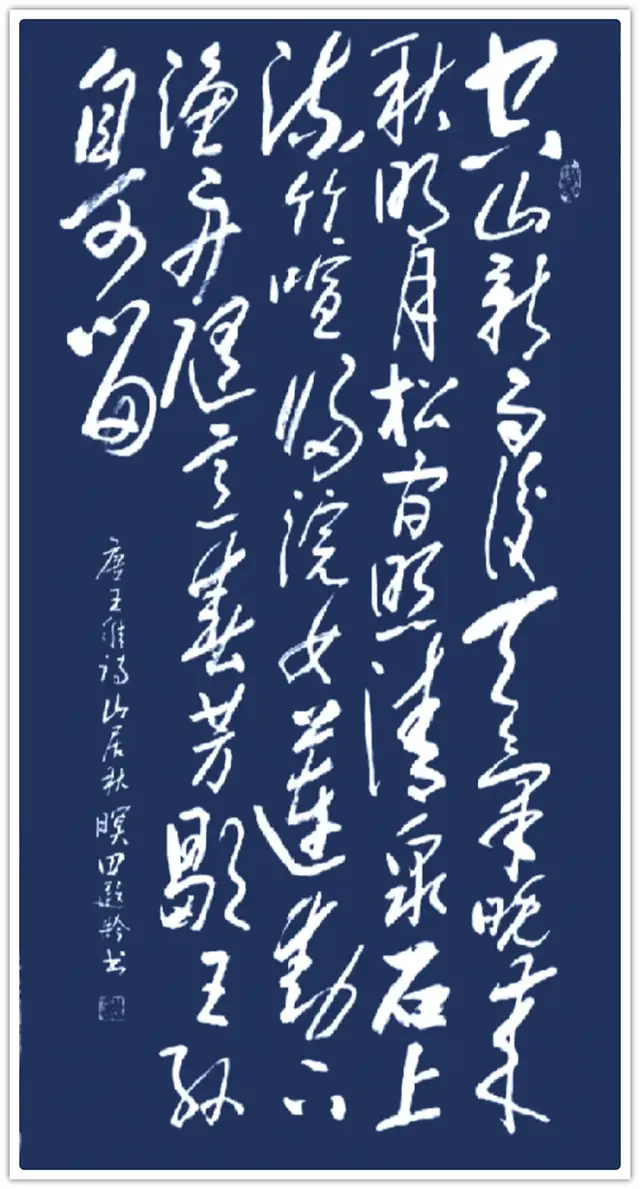 空山新雨後天氣晚来
秋明月松間照清泉石上
流竹喧歸浣女蓮動下
漁舟隨意春芳歇王孫
自可留
唐王維詩山居秋暝田遐齡书